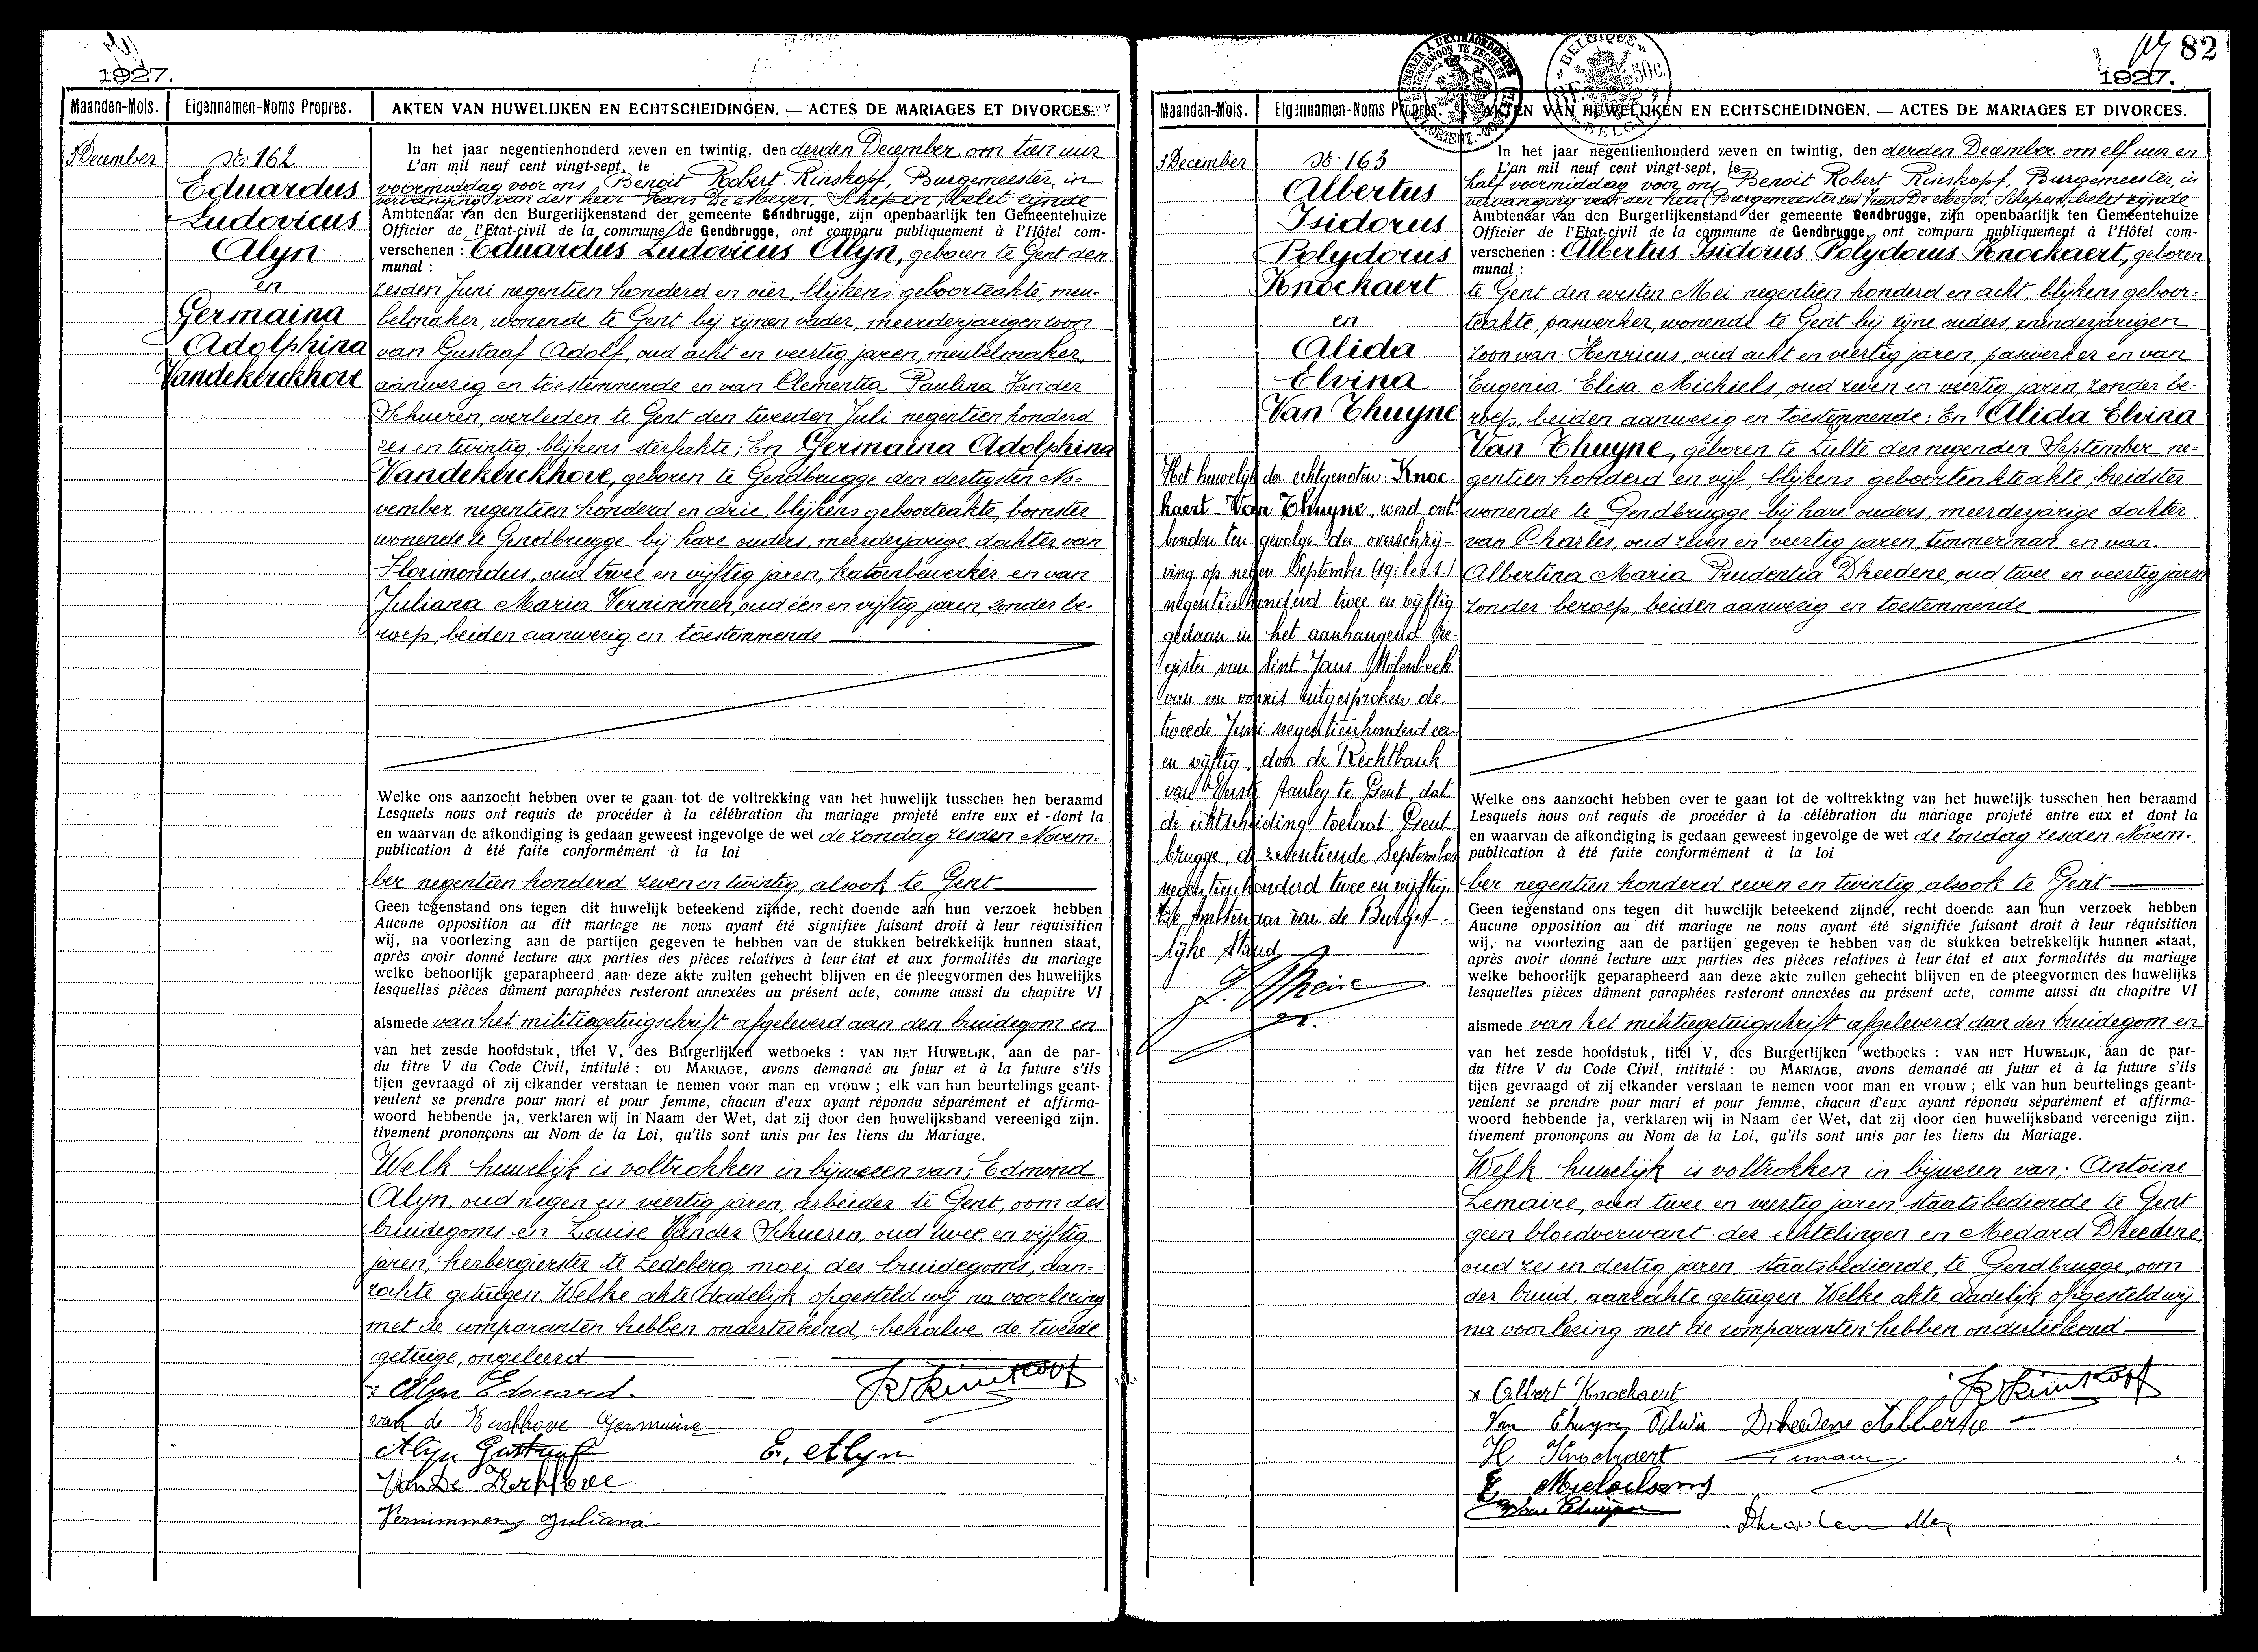 1927.
Maanden-Mois. Eigennamen-Noms Propres. AKTEN VAN HUWELIJKEN EN ECHTSCHEIDINGEN. — ACTES DE MARIAGES ET DIVORCES.
3 December
No 162
Eduardus
Ludovicus
Alyn
en
Germaina
Adolphina
Vandekerckhove
In het jaar negentienhonderd zeven en twintig, den derden December om tien uur
L'an mil neuf cent vingt-sept, le
voormiddag voor ons Benoit Robert Rinskopf, Burgemeester, in
vervanging van den heer Frans De Meyer, Schepen, belet zijnde
Ambtenaar van den Burgerlijkenstand der gemeente Gendbrugge, zijn openbaarlijk ten Gemeentehuize
Officier de l'Etat-civil de la commune de Gendbrugge, ont comparu publiquement à l'Hôtel com-
verschenen : Eduardus Ludovicus Alyn, geboren te Gent den
munal :
zesden Juni negentien honderd en vier, blijkens geboorteakte, meu-
belmaker, wonende te Gent bij zijnen vader, meerderjarigen zoon
van Gustaaf Adolf, oud acht en veertig jaren, meubelmaker,
aanwezig en toestemmende en van Clementia Paulina Vander
Schueren, overleden te Gent den tweeden Juli negentien honderd
zes en twintig, blijkens sterfakte; En Germaina Adolphina
Vandekerckhove, geboren te Gendbrugge den dertigsten No-
vember negentien honderd en drie, blijkens geboorteakte, bornster
wonende te Gendbrugge bij hare ouders, meerderjarige dochter van
Florimondus, oud twee en vijftig jaren, katoenbewerker en van
Juliana Maria Vernimmen, oud één en vijftig jaren, zonder be-
roep, beiden aanwezig en toestemmende
Welke ons aanzocht hebben over te gaan tot de voltrekking van het huwelijk tusschen hen beraamd
Lesquels nous ont requis de procéder à la célébration du mariage projeté entre eux et dont la
en waarvan de afkondiging is gedaan geweest ingevolge de wet de zondag zesden Novem-
publication à été faite conformément à la loi
ber negentien honderd zeven en twintig, alsook te Gent
Geen tegenstand ons tegen dit huwelijk beteekend zijnde, recht doende aan hun verzoek hebben
Aucune opposition au dit mariage ne nous ayant été signifiée faisant droit à leur réquisition
wij, na voorlezing aan de partijen gegeven te hebben van de stukken betrekkelijk hunnen staat,
après avoir donné lecture aux parties des pièces relatives à leur état et aux formalités du mariage
welke behoorlijk geparapheerd aan deze akte zullen gehecht blijven en de pleegvormen des huwelijks
lesquelles pièces dûment paraphées resteront annexées au présent acte, comme aussi du chapitre VI
alsmede van het militiegetuigschrift afgeleverd aan den bruidegom en
van het zesde hoofdstuk, titel V, des Burgerlijken wetboeks : VAN HET HUWELIJK, aan de par-
du titre V du Code Civil, intitulé : DU MARIAGE, avons demandé au futur et à la future s'ils
tijen gevraagd of zij elkander verstaan te nemen voor man en vrouw ; elk van hun beurtelings geant-
veulent se prendre pour mari et pour femme, chacun d'eux ayant répondu séparément et affirma-
woord hebbende ja, verklaren wij in Naam der Wet, dat zij door den huwelijksband vereenigd zijn.
tivement prononçons au Nom de la Loi, qu'ils sont unis par les liens du Mariage.
Welk huwelijk is voltrokken in bijwezen van; Edmond
Alyn, oud negen en veertig jaren, arbeider te Gent, oom des
bruidegoms en Louise Vander Schueren, oud twee en vijftig
jaren, herbergierster te Ledeberg, moei des bruidegoms, aan-
zochte getuigen. Welke akte dadelijk opgesteld wij na voorlezing
met de comparanten hebben onderteekend, behalve de tweede
getuige, ongeleerd
x Alyn Edouard.
van de Kerkhove Germaine
Alyn Gustaaf
E. Alyn
Van De Kerkhove
Vernimmen Juliana
82
1927.
Maanden-Mois. Eigennamen-Noms Propres. AKTEN VAN HUWELIJKEN EN ECHTSCHEIDINGEN. — ACTES DE MARIAGES ET DIVORCES.
3 December
No 163
Albertus
Isidorus
Polydorus
Knockaert
en
Alida
Elvina
Van Thuyne
Het huwelijk der echtgenoten: Knoc-
kaert - Van Thuyne, werd ont-
bonden ten gevolge der overschrij-
ving op negen September
negentienhonderd twee en vijftig
gedaan in het aanhangend Re-
gister van Sint Jans Molenbeek
van een vonnis uitgesproken de
tweede Juni negentienhonderd een
en vijftig, door de Rechtbank
van Eerste Aanleg te Gent, dat
de echtscheiding toelaat. Gent-
brugge, de zeventiende September
negentienhonderd twee en vijftig.
De Ambtenaar van de Burger-
lijke Stand
In het jaar negentienhonderd zeven en twintig, den derden December om elf uur en
L'an mil neuf cent vingt-sept, le
half voormiddag voor ons Benoit Robert Rinskopf, Burgemeester, in
vervanging van den heer Frans De Meyer, Schepen, belet zijnde
Ambtenaar van den Burgerlijkenstand der gemeente Gendbrugge, zijn openbaarlijk ten Gemeentehuize
Officier de l'Etat-civil de la commune de Gendbrugge, ont comparu publiquement à l'Hôtel com-
verschenen : Albertus Isidorus Polydorus Knockaert, geboren
munal :
te Gent den eersten Mei negentien honderd en acht, blijkens geboor-
teakte, paswerker, wonende te Gent bij zijne ouders, minderjarigen
zoon van Henricus, oud acht en veertig jaren, paswerker en van
Eugenia Elisa Michiels, oud zeven en veertig jaren, zonder be-
roep, beiden aanwezig en toestemmende; En Alida Elvina
Van Thuyne, geboren te Zulte den negenden September ne-
gentien honderd en vijf, blijkens geboortenkteakte, breidster
wonende te Gendbrugge bij hare ouders, meerderjarige dochter
van Charles, oud zeven en veertig jaren, timmerman en van
Albertina Maria Prudentia Dheedene, oud twee en veertig jaren
zonder beroep, beiden aanwezig en toestemmende
Welke ons aanzocht hebben over te gaan tot de voltrekking van het huwelijk tusschen hen beraamd
Lesquels nous ont requis de procéder à la célébration du mariage projeté entre eux et dont la
en waarvan de afkondiging is gedaan geweest ingevolge de wet de zondag zesden Novem-
publication à été faite conformément à la loi
ber negentien honderd zeven en twintig, alsook te Gent
Geen tegenstand ons tegen dit huwelijk beteekend zijnde, recht doende aan hun verzoek hebben
Aucune opposition au dit mariage ne nous ayant été signifiée faisant droit à leur réquisition
wij, na voorlezing aan de partijen gegeven te hebben van de stukken betrekkelijk hunnen staat,
après avoir donné lecture aux parties des pièces relatives à leur état et aux formalités du mariage
welke behoorlijk geparapheerd aan deze akte zullen gehecht blijven en de pleegvormen des huwelijks
lesquelles pièces dûment paraphées resteront annexées au présent acte, comme aussi du chapitre VI
alsmede van het militiegetuigschrift afgeleverd aan den bruidegom en
van het zesde hoofdstuk, titel V, des Burgerlijken wetboeks : VAN HET HUWELIJK, aan de par-
du titre V du Code Civil, intitulé : DU MARIAGE, avons demandé au futur et à la future s'ils
tijen gevraagd of zij elkander verstaan te nemen voor man en vrouw ; elk van hun beurtelings geant-
veulent se prendre pour mari et pour femme, chacun d'eux ayant répondu séparément et affirma-
woord hebbende ja, verklaren wij in Naam der Wet, dat zij door den huwelijksband vereenigd zijn.
tivement prononçons au Nom de la Loi, qu'ils sont unis par les liens du Mariage.
Welk huwelijk is voltrokken in bijwesen van; Antoine
Lemaire, oud twee en veertig jaren, staatsbediende te Gent
geen bloedverwant der echtelingen en Medard Dheedene,
oud zes en dertig jaren staatsbediende, te Gendbrugge, oom
der bruid, aanzochte getuigen. Welke akte dadelijk opgesteld wij
na voorlezing met de comparanten hebben onderteekend
x Albert Knockaert
Van Thuyne Elvina Dheedene Albertine
H Knockaert